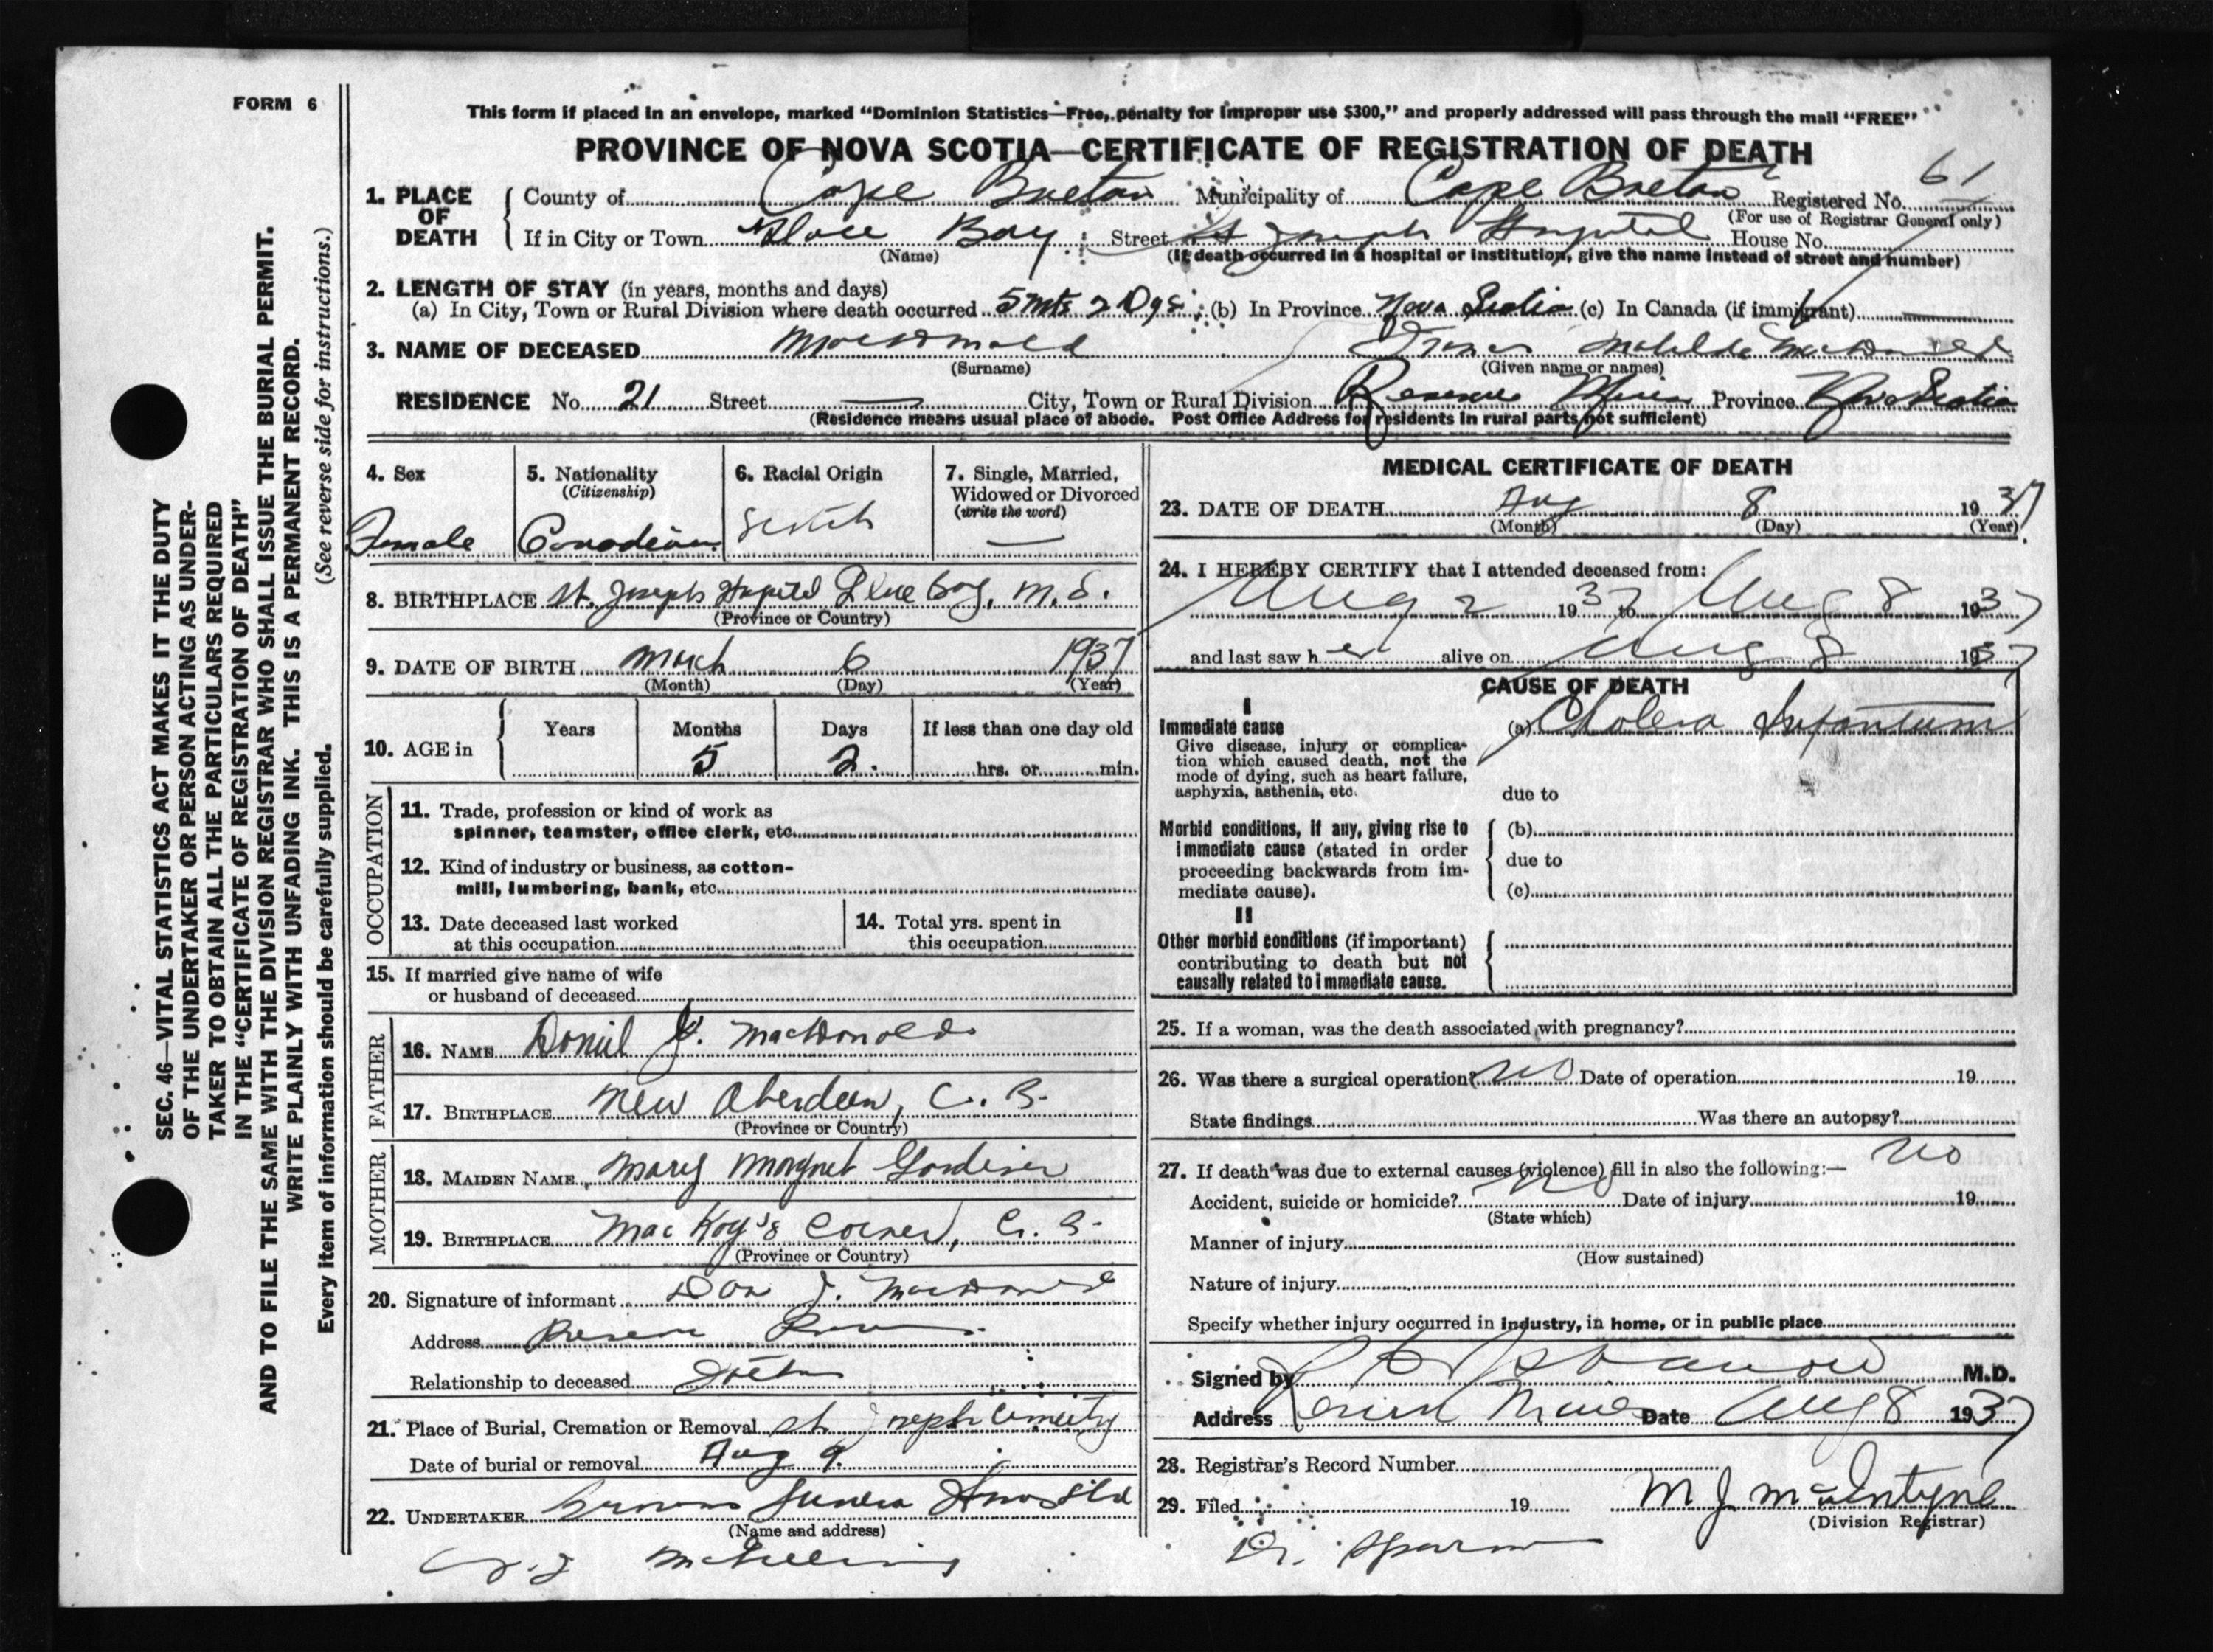 FORM 6
This form if placed in an envelope, marked “Dominion Statistics—Free, penalty for improper use $300,” and properly addressed will pass through the mail “FREE”
PROVINCE OF NOVA SCOTIA—CERTIFICATE OF REGISTRATION OF DEATH
1. PLACE OF DEATH
County of Cape Breton Municipality of Cape Breton Registered No. 61
(For use of Registrar General only)
If in City or Town Glace Bay Street St Joseph Hospital House No.
(Name) (If death occurred in a hospital or institution, give the name instead of street and number)
2. LENGTH OF STAY (in years, months and days)
(a) In City, Town or Rural Division where death occurred 5 mts 2 Dys (b) In Province Nova Scotia (c) In Canada (if immigrant) —
3. NAME OF DECEASED MacDonald Matilda MacDonald
(Surname) (Given name or names)
RESIDENCE No. 21 Street — City, Town or Rural Division Reserve Mines Province Nova Scotia
(Residence means usual place of abode. Post Office Address for residents in rural parts not sufficient)
4. Sex
Female
5. Nationality
(Citizenship)
Canadian
6. Racial Origin
Scotch
7. Single, Married,
Widowed or Divorced
(write the word)
—
8. BIRTHPLACE St. Josephs Hospital Glace Bay, N.S.
(Province or Country)
9. DATE OF BIRTH March 6 1937
(Month) (Day) (Year)
10. AGE in
Years Months Days If less than one day old
5 2. hrs. or min.
OCCUPATION
11. Trade, profession or kind of work as
spinner, teamster, office clerk, etc.
12. Kind of industry or business, as cotton-
mill, lumbering, bank, etc.
13. Date deceased last worked
at this occupation
14. Total yrs. spent in
this occupation
15. If married give name of wife
or husband of deceased
FATHER
16. NAME Daniel J. MacDonald
17. BIRTHPLACE New Aberdeen, C. B.
(Province or Country)
MOTHER
18. MAIDEN NAME Mary Margret
19. BIRTHPLACE MacKay's Corner, C. B.
(Province or Country)
20. Signature of informant Dan J. MacDonald
Address Reserve
Relationship to deceased Father
21. Place of Burial, Cremation or Removal St Joseph Cemetery
Date of burial or removal Aug 9.
22. UNDERTAKER Funeral
(Name and address)
MEDICAL CERTIFICATE OF DEATH
23. DATE OF DEATH Aug 8 1937
(Month) (Day) (Year)
24. I HEREBY CERTIFY that I attended deceased from:
Aug 2 1937 to Aug 8 1937
and last saw her alive on Aug 8 1937
CAUSE OF DEATH
I
Immediate cause
Give disease, injury or complica-
tion which caused death, not the
mode of dying, such as heart failure,
asphyxia, asthenia, etc.
(a) Cholera Infantum
due to
Morbid conditions, if any, giving rise to
immediate cause (stated in order
proceeding backwards from im-
mediate cause).
(b)
due to
(c)
II
Other morbid conditions (if important)
contributing to death but not
causally related to immediate cause.
25. If a woman, was the death associated with pregnancy?
26. Was there a surgical operation? No Date of operation 19
State findings Was there an autopsy?
No
27. If death was due to external causes (violence) fill in also the following:—
Accident, suicide or homicide? No Date of injury 19
(State which)
Manner of injury
(How sustained)
Nature of injury
Specify whether injury occurred in industry, in home, or in public place
Signed by M.D.
Address Mines Date Aug 8 1937
28. Registrar's Record Number
29. Filed 19 M J McIntyre
(Division Registrar)
Dr.
SEC. 46—VITAL STATISTICS ACT MAKES IT THE DUTY
OF THE UNDERTAKER OR PERSON ACTING AS UNDER-
TAKER TO OBTAIN ALL THE PARTICULARS REQUIRED
IN THE “CERTIFICATE OF REGISTRATION OF DEATH”
AND TO FILE THE SAME WITH THE DIVISION REGISTRAR WHO SHALL ISSUE THE BURIAL PERMIT.
WRITE PLAINLY WITH UNFADING INK. THIS IS A PERMANENT RECORD.
Every item of information should be carefully supplied. (See reverse side for instructions.)